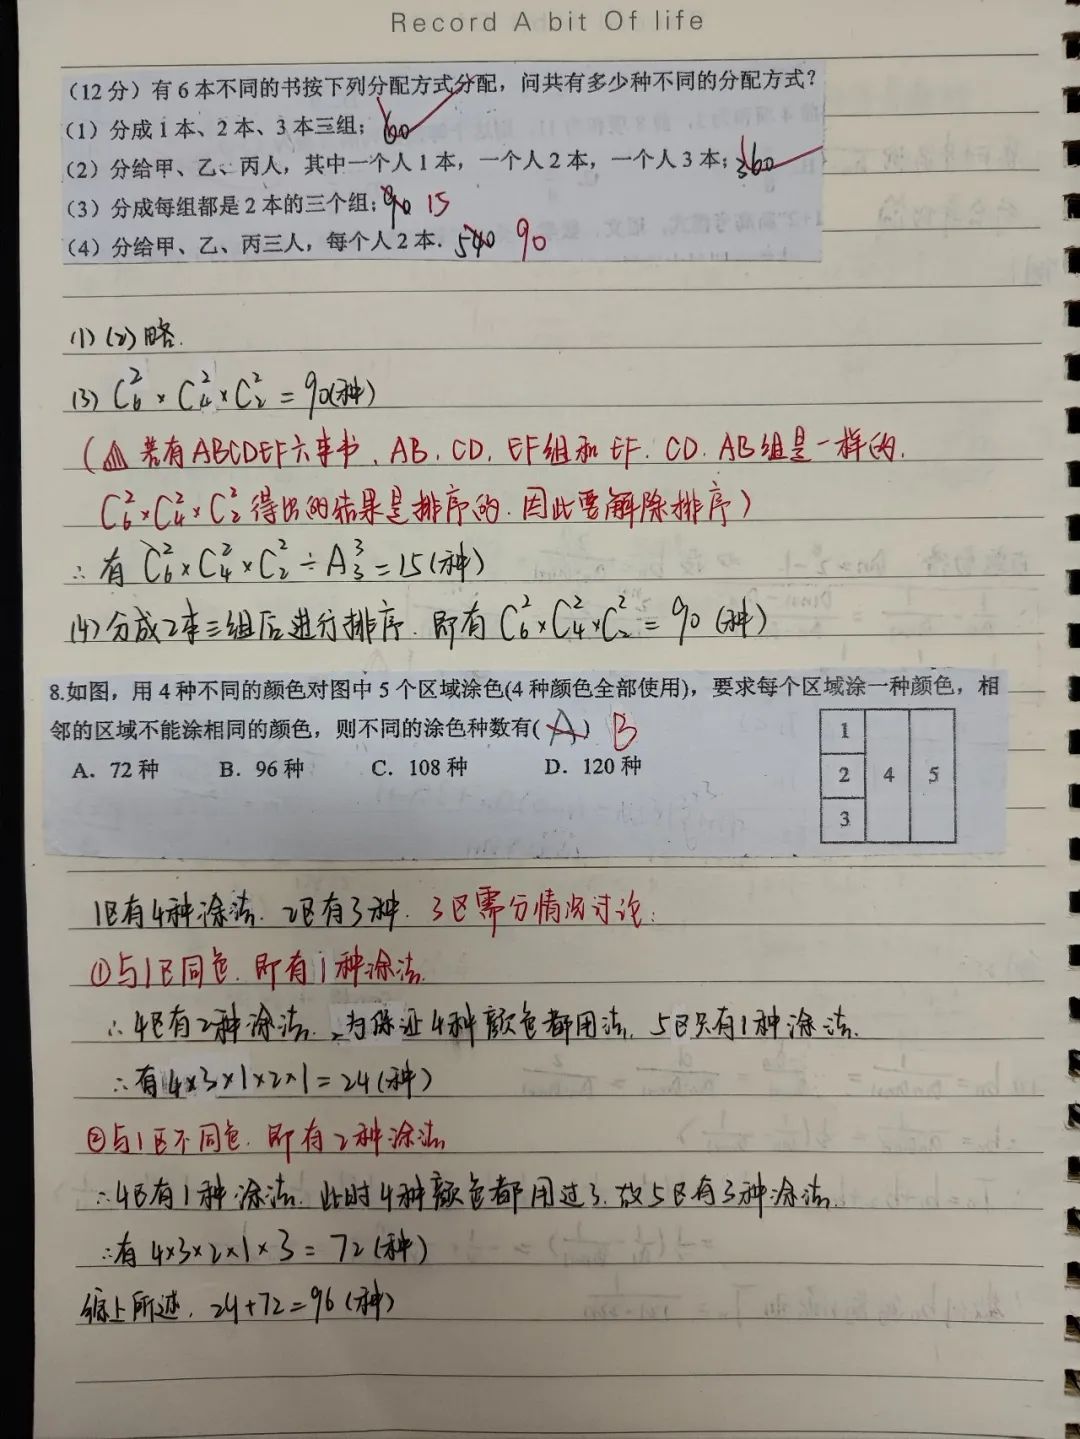 Record A bit Of life
(12 分) 有 6 本不同的书按下列分配方式分配，问共有多少种不同的分配方式？
(1) 分成 1 本、2 本、3 本三组；60
(2) 分给甲、乙、丙人，其中一个人 1 本，一个人 2 本，一个人 3 本；360
(3) 分成每组都是 2 本的三个组；90 15
(4) 分给甲、乙、丙三人，每个人 2 本．540 90
(1) (2) 略.
(3) C₆² × C₄² × C₂² = 90(种)
(△ 若有ABCDEF六本书、AB. CD. EF组和 EF. CD. AB组是一样的.
C₆²×C₄²×C₂² 得出的结果是排序的. 因此要解除排序)
∴有 C₆²×C₄²×C₂² ÷ A₃³ = 15(种)
(4) 分成2本三组后进行排序. 即有 C₆²×C₄²×C₂² = 90 (种)
8.如图，用 4 种不同的颜色对图中 5 个区域涂色(4 种颜色全部使用)，要求每个区域涂一种颜色，相
邻的区域不能涂相同的颜色，则不同的涂色种数有( A ) B
A．72 种 B．96 种 C．108 种 D．120 种
1
2 4 5
3
1区有4种涂法. 2区有3种. 3区需分情况讨论:
①与1区同色. 即有1种涂法.
∴4区有2种涂法. 为保证4种颜色都用法, 5区只有1种涂法.
∴有 4×3×1×2×1=24(种)
②与1区不同色. 即有2种涂法
∴4区有1种涂法. 此时4种颜色都用过了. 故5区有3种涂法.
∴有 4×3×2×1×3 = 72(种)
综上所述. 24+72=96(种)